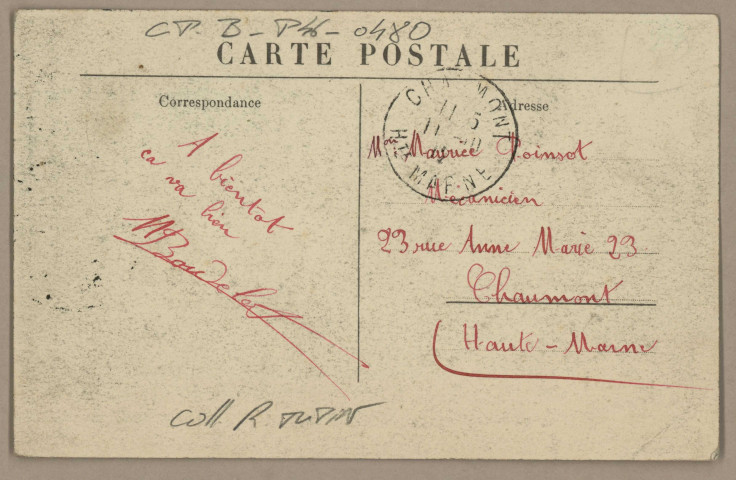 CP. B - P - 0480
CARTE POSTALE
Correspondance
Adresse
CHAUMONT
11 5
Hte MARNE
A bientot
ca va bien
M Baudelot
Mr Maurice Poinsot
Mécanicien
23 rue Anne Marie 23
Chaumont
(Haute - Marne
Coll. R.